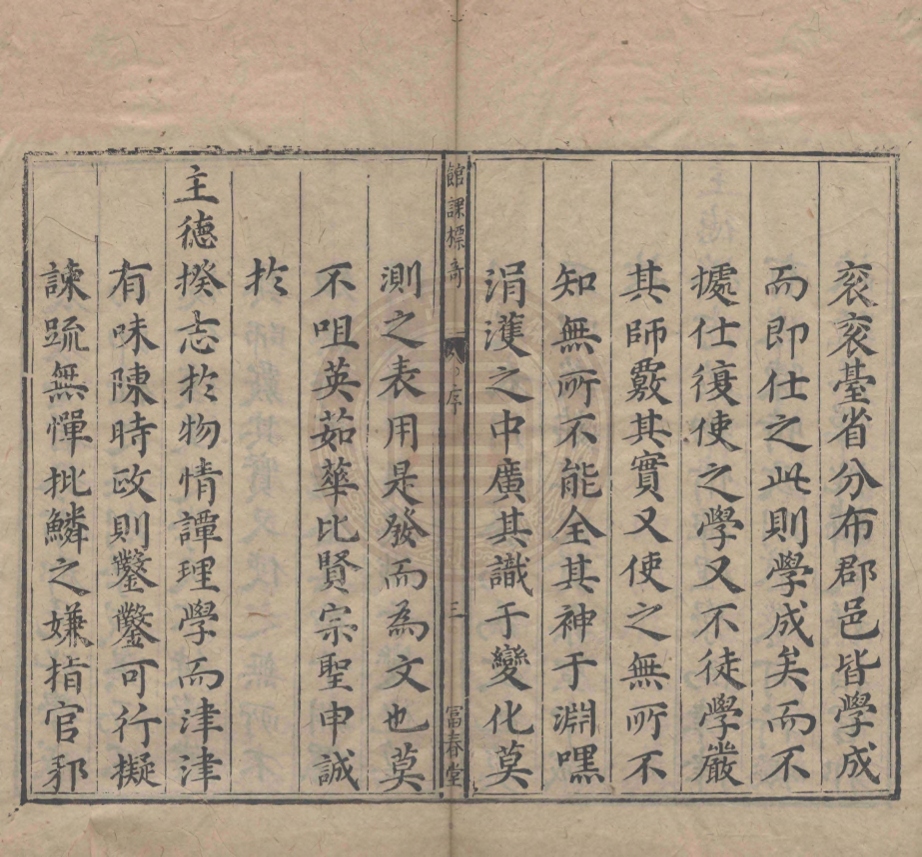 袞袞臺省分布郡邑皆學成
而即仕之此則學成矣而不
攄仕復使之學又不徒學嚴
其師覈其實又使之無所不
知無所不能全其神于淵嘿
涓濩之中廣其識于變化莫
館課標奇 序 三 富春堂
測之表用是發而為文也莫
不咀英茹華比賢宗聖申誠
於
主德揆志於物情譚理學而津津
有味陳時政則鑿鑿可行擬
諫疏無憚批鱗之嫌指官邪